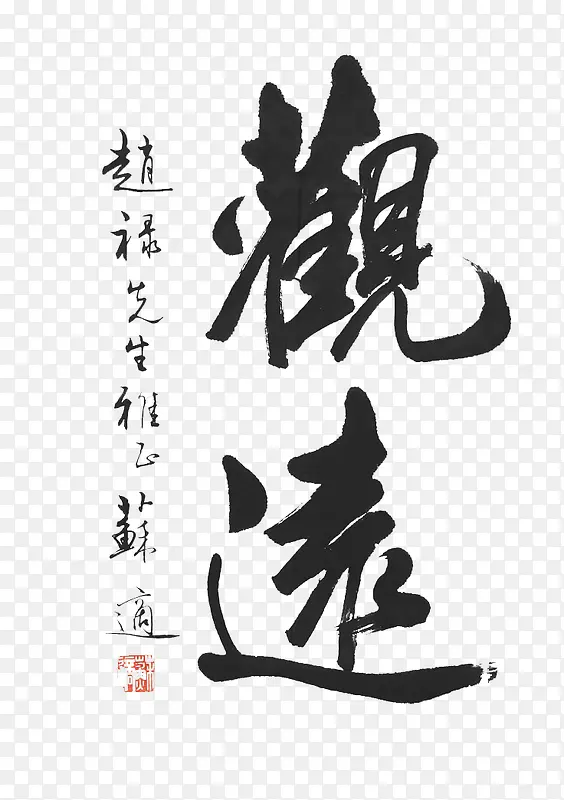 觀遠
趙禄先生雅正
蘇適